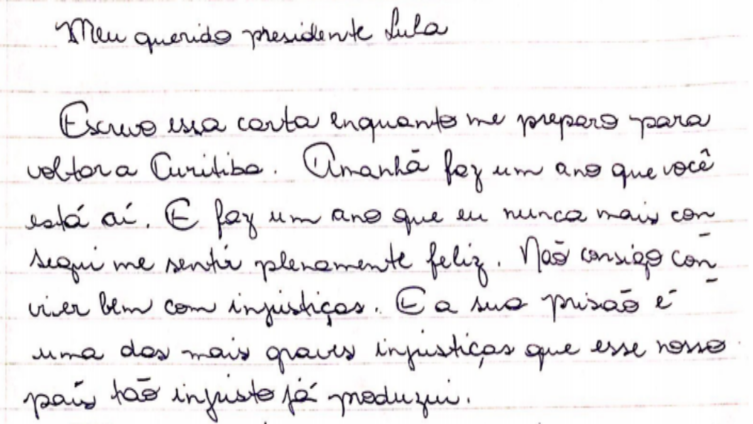 Meu querido presidente Lula
Escrevo essa carta enquanto me preparo para
voltar a Curitiba. Amanhã faz um ano que você
está aí. E faz um ano que eu nunca mais con
segui me sentir plenamente feliz. Não consigo con
viver bem com injustiças. E a sua prisão é
uma das mais graves injustiças que esse nosso
país tão injusto já produziu.